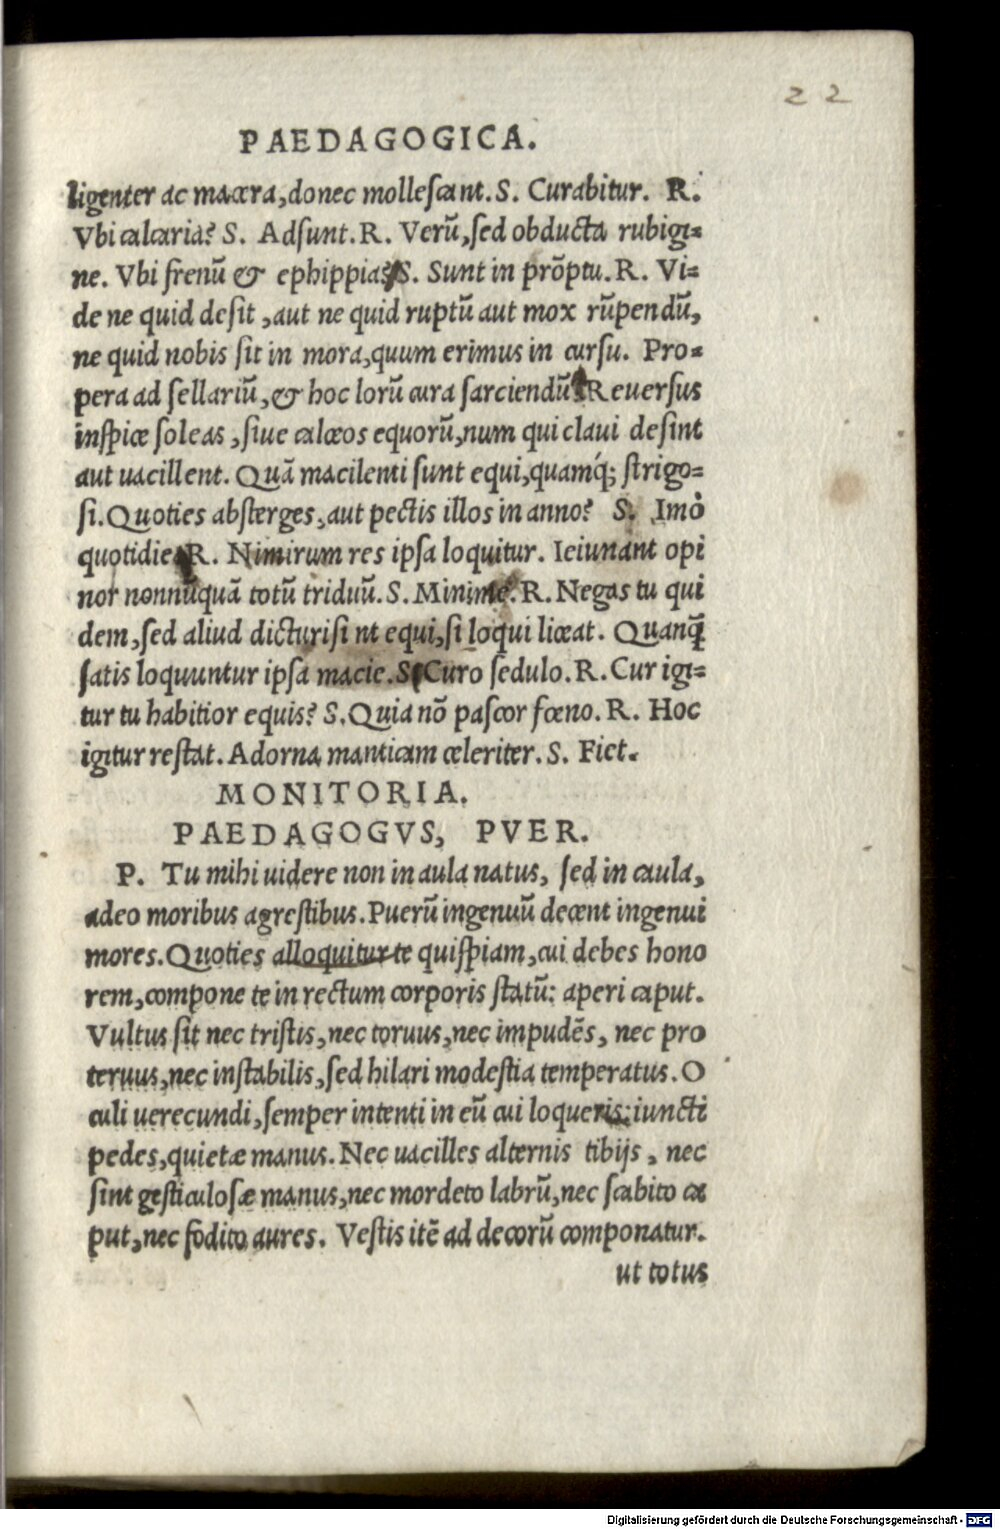 22
PAEDAGOGICA.
ligenter ac macera, donec mollescant. S. Curabitur. R.
Vbi calcaria? S. Adsunt. R. Verũ, sed obducta rubigi=
ne. Vbi frenũ & ephippia? S. Sunt in prõptu. R. Vi=
de ne quid desit, aut ne quid ruptũ aut mox rũpendũ,
ne quid nobis sit in mora, quum erimus in cursu. Pro=
pera ad sellariũ, & hoc lorũ cura sarciendũ. Reuersus
inspice soleas, siue calceos equorũ, num qui claui desint
aut uacillent. Quã macilenti sunt equi, quamq́; strigo=
si. Quoties absterges, aut pectis illos in anno? S. Imò
quotidie. R. Nimirum res ipsa loquitur. Ieiunant opi
nor nonnũquã totũ triduũ. S. Minime. R. Negas tu qui
dem, sed aliud dicturi sint equi, si loqui liceat. Quanq̃
satis loquuntur ipsa macie. S. Curo sedulo. R. Cur igi=
tur tu habitior equis? S. Quia nõ pascor fœno. R. Hoc
igitur restat. Adorna manticam celeriter. S. Fiet.
MONITORIA.
PAEDAGOGVS, PVER.
P. Tu mihi uidere non in aula natus, sed in caula,
adeo moribus agrestibus. Puerũ ingenuũ decent ingenui
mores. Quoties alloquitur te quispiam, cui debes hono
rem, compone te in rectum corporis statũ: aperi caput.
Vultus sit nec tristis, nec toruus, nec impudẽs, nec pro
teruus, nec instabilis, sed hilari modestia temperatus. O
culi uerecundi, semper intenti in eũ cui loqueris: iuncti
pedes, quietæ manus. Nec uacilles alternis tibijs, nec
sint gesticulosæ manus, nec mordeto labrũ, nec scabito ca
put, nec fodito aures. Vestis itẽ ad decorũ componatur.
ut totus
Digitalisierung gefördert durch die Deutsche Forschungsgemeinschaft - DFG